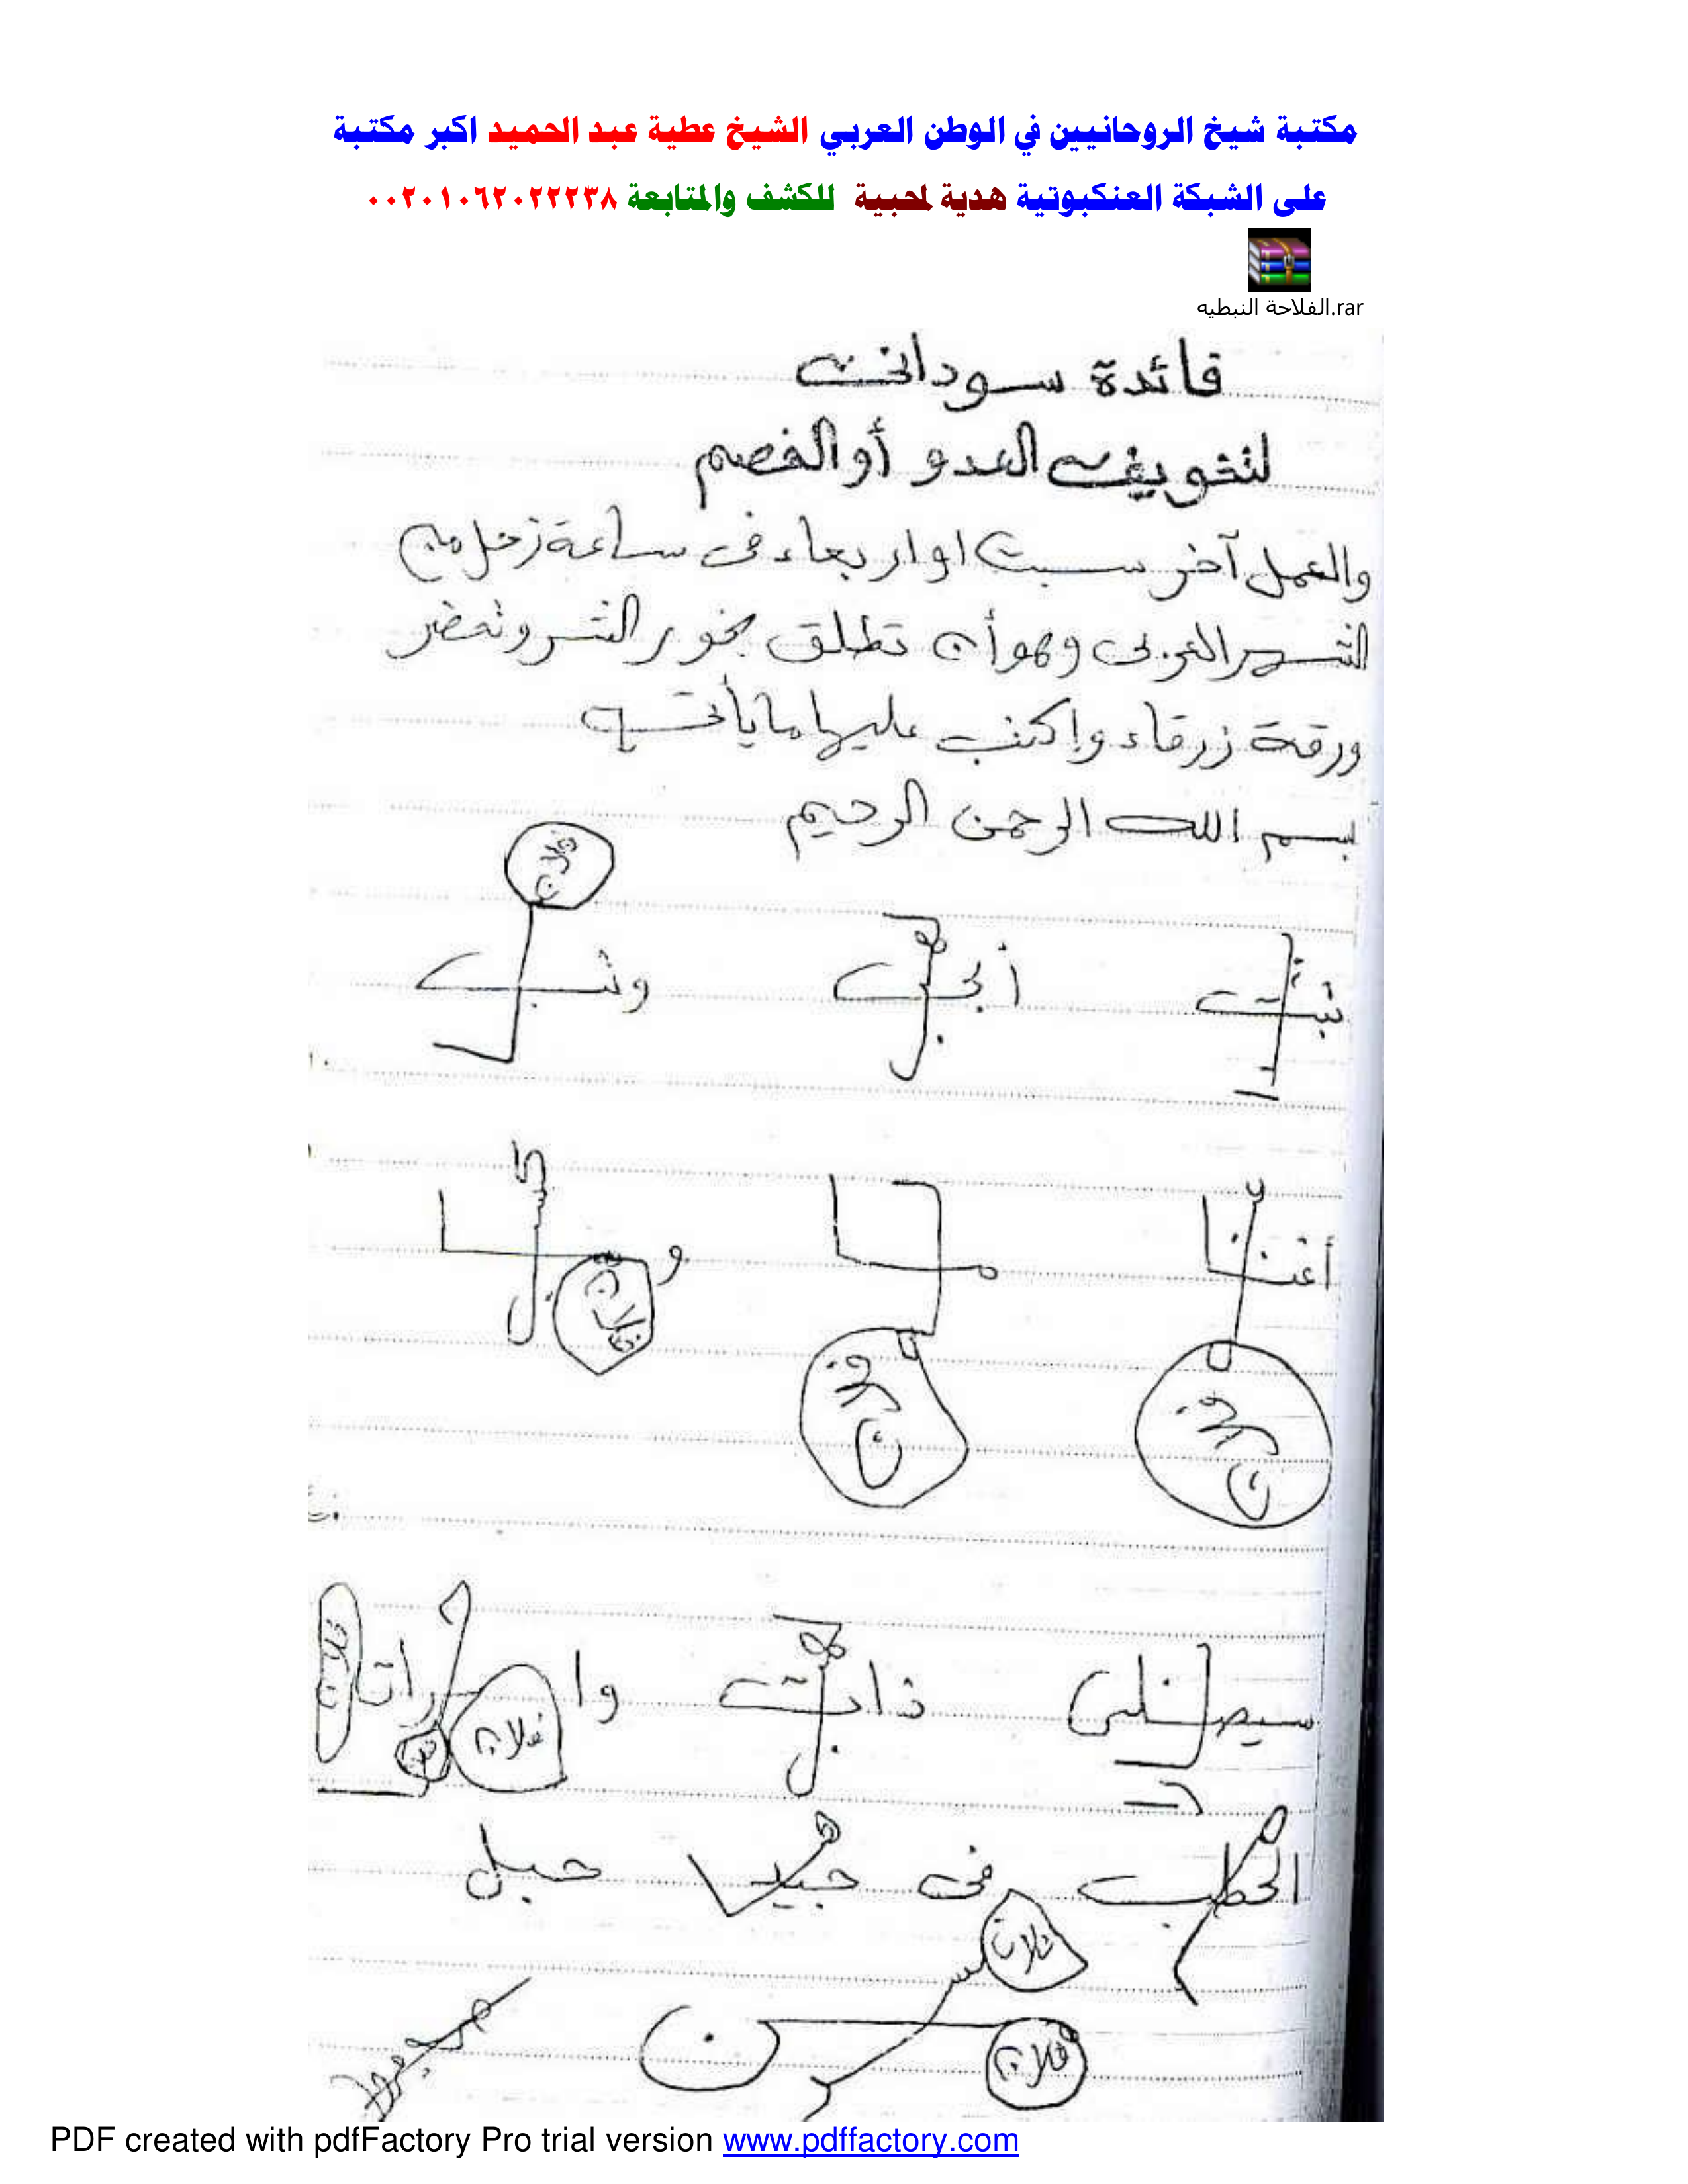 مكتبة شيخ الروحانيين في الوطن العربي الشيخ عطية عبد الحميد اكبر مكتبة
على الشبكة العنكبوتية هدية لمحبية للكشف والمتابعة ٠٠٢٠١٠٦٢٠٢٢٢٣٨
الفلاحة النبطيه.rar
فائدة سودانى
لتخويف العدو أو الخصم
والعمل آخر سبت او اربعاء فى ساعة زحل من
الشهر العربى وهو أن تطلق بخور الشر وتحضر
ورقة زرقاء واكتب عليها ما يأتى
بسم الله الرحمن الرحيم
فلان
تبت أبى وتب
أغنا ما و
فلان فلان فلان
سيصلى ذات وا
فلان فلان
الحطب فى جيد حبل
فلان
فلان
PDF created with pdfFactory Pro trial version www.pdffactory.com